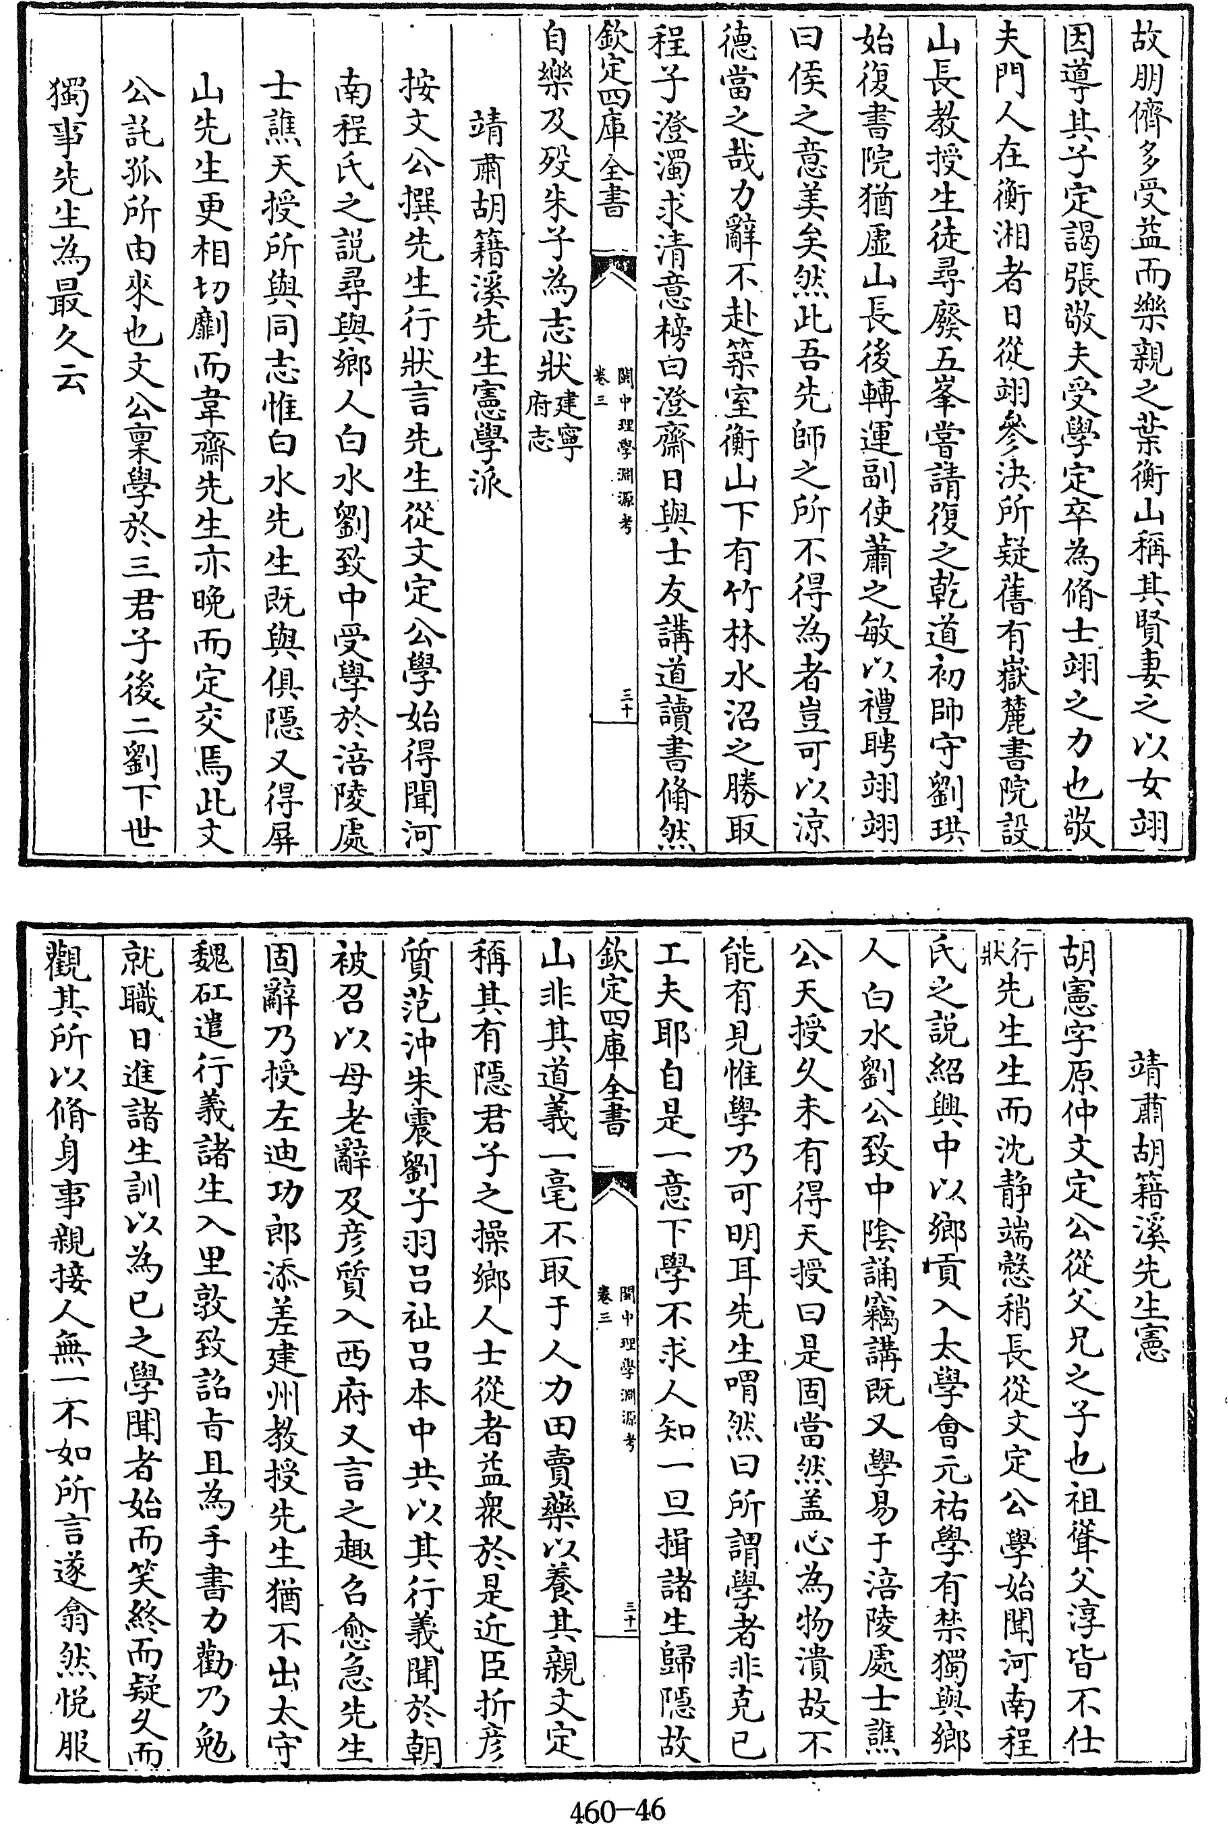 故朋儕多受益而樂親之葉衡山稱其賢妻之以女翊
因導其子定謁張敬夫受學定卒為脩士翊之力也敬
夫門人在衡湘者日從翊參決所疑舊有嶽麓書院設
山長教授生徒尋廢五峯嘗請復之乾道初帥守劉珙
始復書院猶虛山長後轉運副使蕭之敏以禮聘翊翊
曰侯之意美矣然此吾先師之所不得為者豈可以涼
德當之哉力辭不赴築室衡山下有竹林水沼之勝取
程子澄濁求清意榜曰澄齋日與士友講道讀書翛然
欽定四庫全書
閩中理學淵源考
卷三
三十
自樂及歿朱子為志狀建寧府志
靖肅胡籍溪先生憲學派
按文公撰先生行狀言先生從文定公學始得聞河
南程氏之説尋與鄉人白水劉致中受學於涪陵處
士譙天授所與同志惟白水先生既與俱隱又得屏
山先生更相切劘而韋齋先生亦晩而定交焉此文
公託孤所由來也文公稟學於三君子後二劉下世
獨事先生為最久云
靖肅胡籍溪先生憲
胡憲字原仲文定公從父兄之子也祖聳父淳皆不仕
行狀先生生而沈静端慤稍長從文定公學始聞河南程
氏之説紹興中以鄉貢入太學會元祐學有禁獨與鄉
人白水劉公致中陰誦竊講既又學易于涪陵處士譙
公天授久未有得天授曰是固當然盖心為物漬故不
能有見惟學乃可明耳先生喟然曰所謂學者非克己
工夫耶自是一意下學不求人知一旦揖諸生歸隱故
欽定四庫全書
閩中理學淵源考
卷三
三十一
山非其道義一毫不取于人力田賣藥以養其親文定
稱其有隱君子之操鄉人士從者益衆於是近臣折彦
質范沖朱震劉子羽吕祉吕本中共以其行義聞於朝
被召以母老辭及彦質入西府又言之趣召愈急先生
固辭乃授左迪功郎添差建州教授先生猶不出太守
魏矼遣行義諸生入里敦致詔旨且為手書力勸乃勉
就職日進諸生訓以為己之學聞者始而笑終而疑久而
觀其所以脩身事親接人無一不如所言遂翕然悦服
460-46